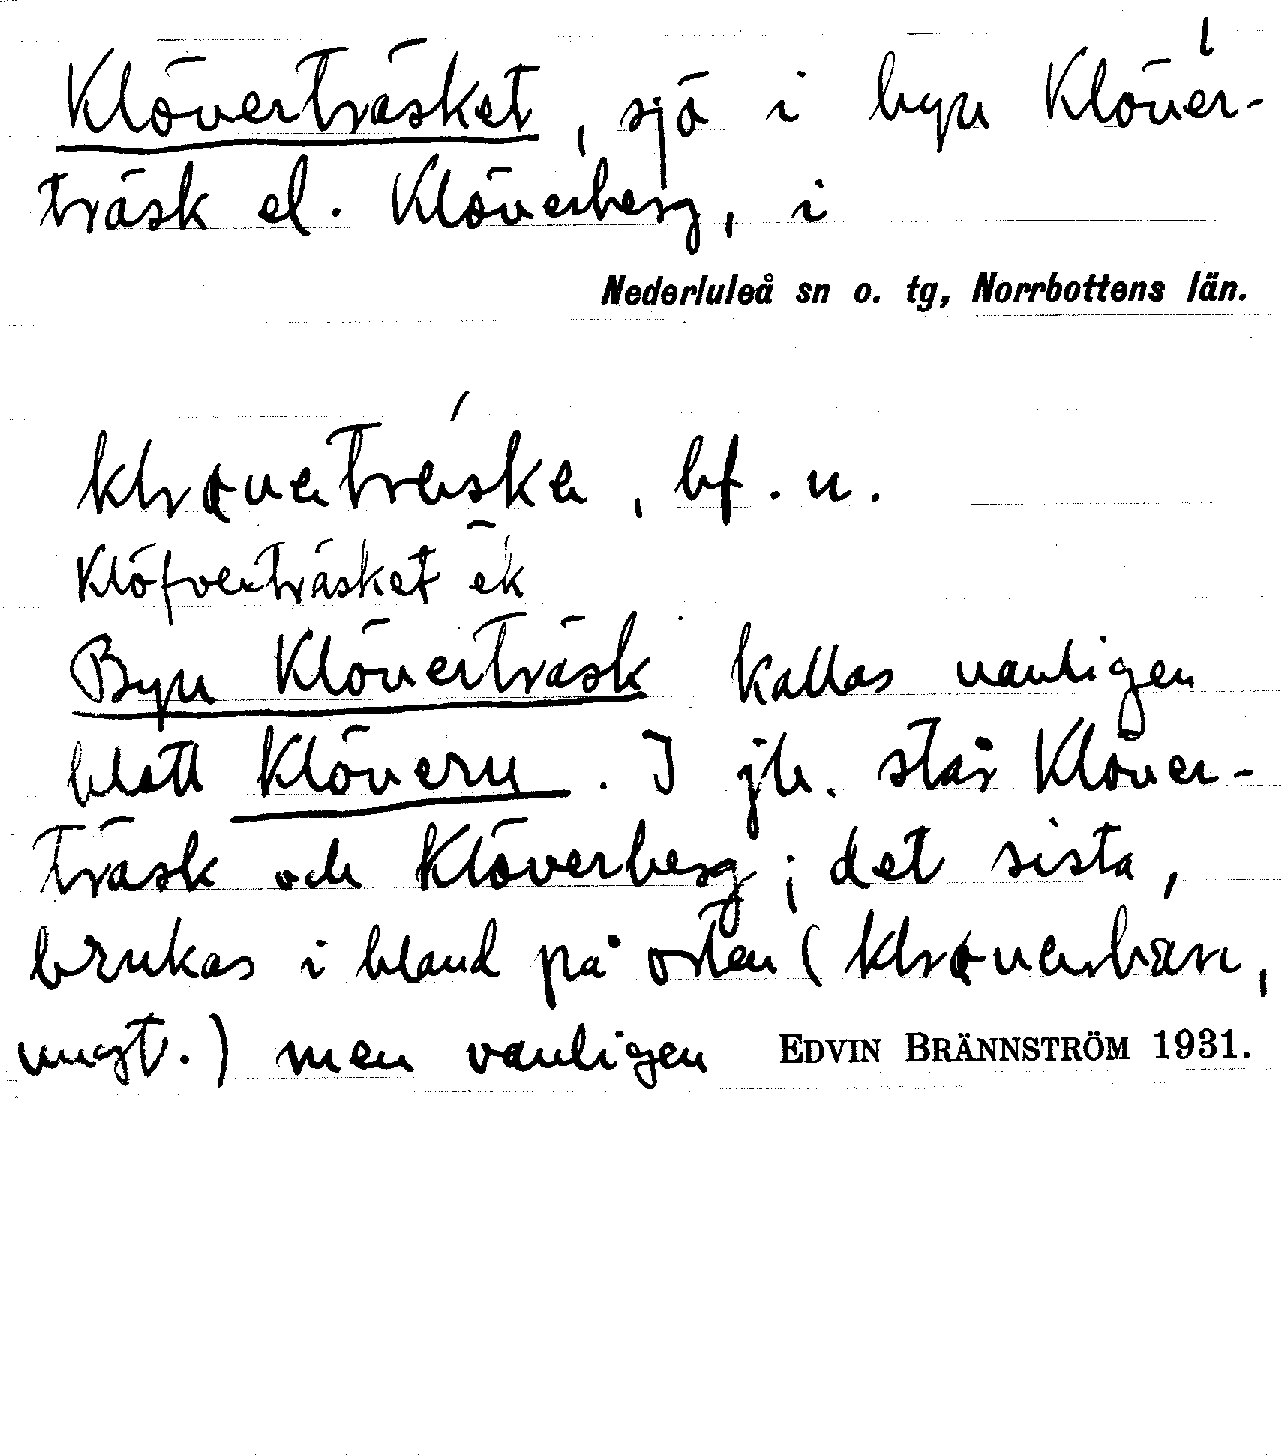 Klöverträsket, sjö i byn Klöver-
träsk el. Klöverberg, i
Nederluleå sn o. tg, Norrbottens län.
bf. n.
Klöfverträsket ek
Byn Klöverträsk kallas vanligen
blott Klövern. I jb. står Klöver-
träsk och Klöverberg; det sista,
brukas i bland på orten (
ungt.) men vanligen EDVIN BRÄNNSTRÖM 1931.